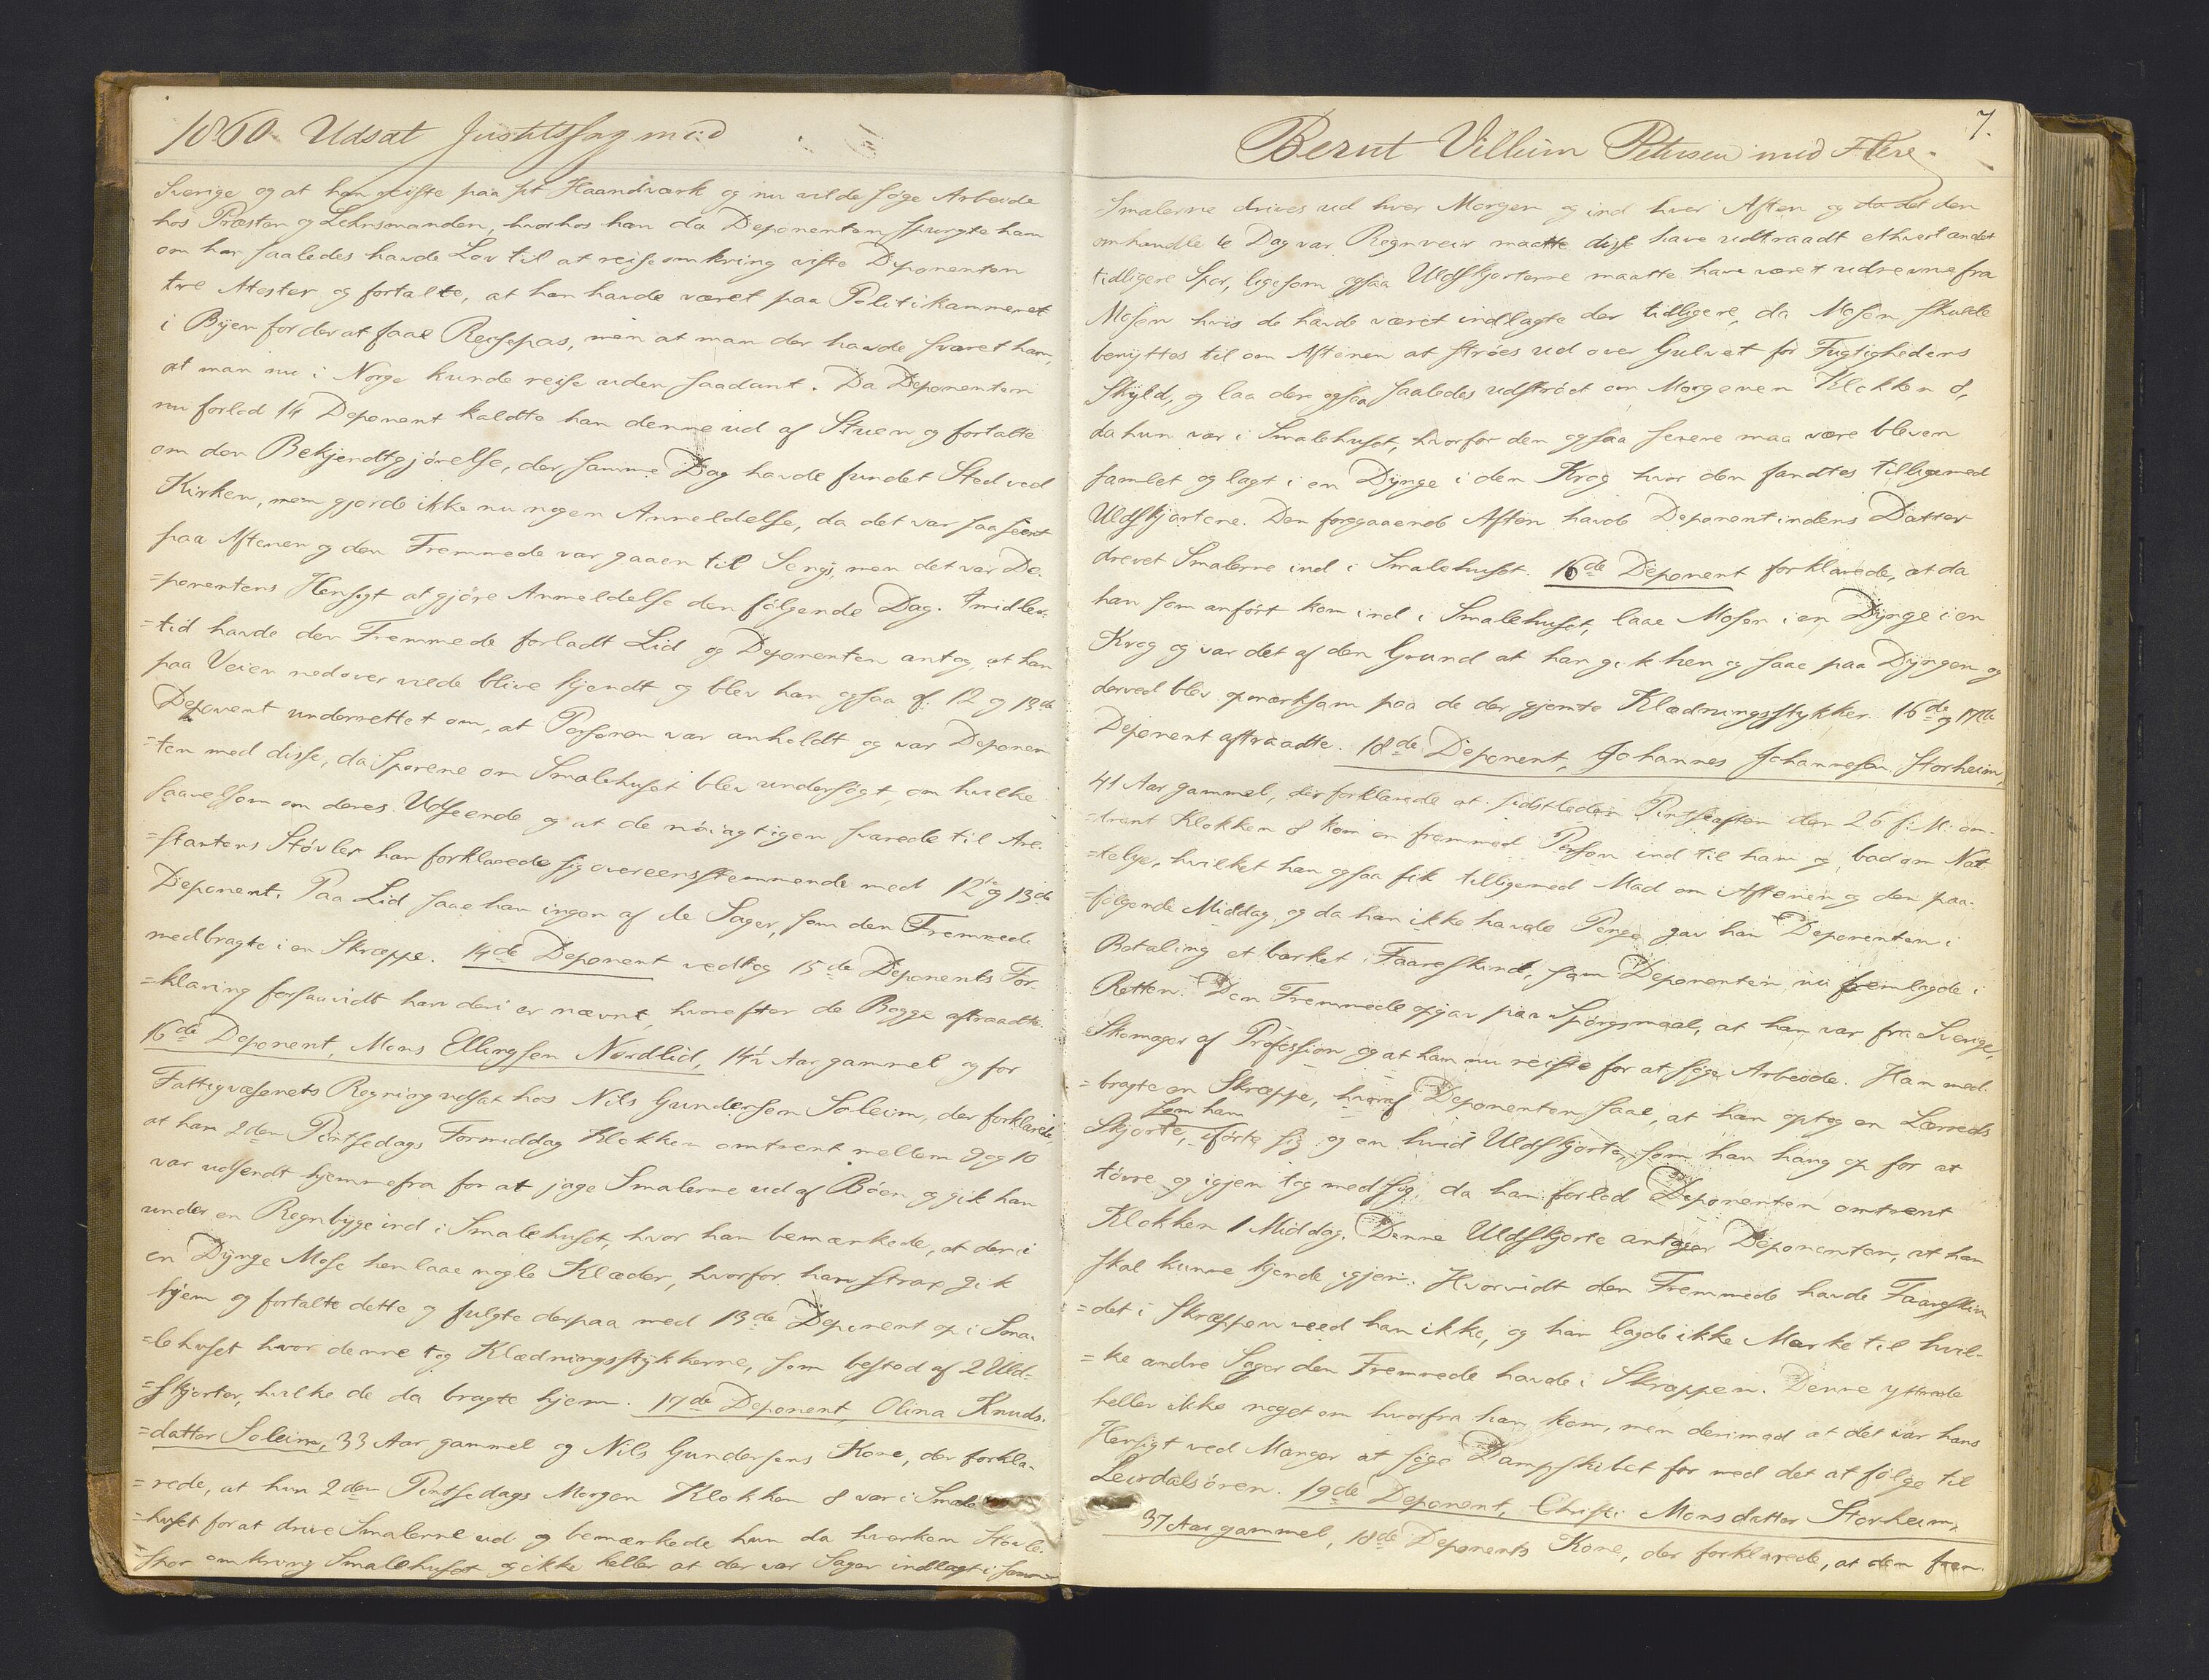 1860 Udsat Justitssag mod
Sverige og at han reiste paa sit Haandværk og nu vilde søge Arbeide
hos Præsten og Lehnsmanden, hvorhos han da Deponenten spurgte ham
om han saaledes havde Lov til at reise omkring viste Deponenten
tre Atester og fortalte, at han havde været paa Politikammeret
i Byen for der at faae Reisepas, men at man der havde svaret ham,
at man nu i Norge kunde reise uden saadant. Da Deponenten
nu forlod 14 Deponent kaldte han denne ud af Stuen og fortalte
om den Bekjendtgjørelse, der samme Dag havde fundet Sted ved
Kirken, men gjorde ikke nu nogen Anmeldelse, da det var saa seent
paa Aftenen og den Fremmede var gaaen til Sengs, men det var De-
=ponentens Hensigt at gjøre Anmeldelse den følgende Dag. Imidler-
=tid havde den Fremmede forladt Lid og Deponenten antog, at han
paa Veien nedover vilde blive kjendt og blev han ogsaa af 12 og 13de
Deponent underrettet om, at Personen var anholdt og var Deponen-
=ten med disse, da Sporene om Smalehuset blev undersøgt, om hvilke
saavelsom om deres Udseende og at de nøiagtigen svarede til Are-
=stantens Støvler han forklarede sig overeensstemmende med 12 og 13de
Deponent. Paa Lid saae han ingen af de Sager, som den Fremmede
medbragte i en Skræppe. 14de Deponent vedtog 15de Deponents For-
=klaring forsaavidt han deri er nævnt, hvorefter de Begge aftraadte.
16de Deponent, Mons Ellingsen Nordlid, 14½ Aar gammel og for
Fattigvæsenets Regning udsat hos Nils Gundersen Soleim, der forklarede,
at han 2den Pintsedags Formiddag Klokken omtrent mellem 9 og 10
var udsendt hjemmefra for at jage Smalerne ud af Bøen og gik han
under en Regnbyge ind i Smalehuset, hvor han bemærkede, at der i
en Dynge Mose henlaae nogle Klæder, hvorfor han strax gik
hjem og fortalte dette og fulgte derpaa med 13de Deponent op i Sma-
=lehuset hvor denne tog Klædningsstykkerne, som bestod af 2 Uld-
=skjorter, hvilke de da bragte hjem. 17de Deponent, Olina Knuds-
=datter Soleim, 33 Aar gammel og Nils Gundersens Kone, der forkla-
=rede, at hun 2den Pintsedags Morgen Klokken 8 var i Smale
=huset for at drive Smalerne ud og bemærkede hun da hverken Støvle-
=spor omkring Smalehuset og ikke heller at der var Sager indlagt i samme
7.
Bernt Villum Petersen med Flere.
Smalerne drives ud hver Morgen og ind hver Aften og da det den
omhandlede Dag var Regnveir maatte disse have udtraadt ethvert andet
tidligere Spor, ligesom ogsaa Uldskjorterne maatte have været udrevne fra
Mosen hvis de havde været indlagte der tidligere, da Mosen skulde
benyttes til om Aftenen at strøes ud over Gulvet for Fugtighedens
Skyld, og laa den ogsaa saaledes udstrøet om Morgenen Klokken 8,
da hun var i Smalehuset, hvorfor den ogsaa senere maa være bleven
samlet og lagt i en Dynge i den Krog hvor den fandtes tilligemed
Uldskjortene. Den foregaaende Aften havde Deponentindens Datter
drevet Smalerne ind i Smalehuset. 16de Deponent forklarede, at da
han som anført kom ind i Smalehuset, laae Mosen i en Dynge i en
Krog og var det af den Grund at han gik hen og saae paa Dyngen og
derved blev opmærksom paa de der gjemte Klædningsstykker. 16de og 17de
Deponent aftraadte. 18de Deponent, Johannes Johannesen Storheim,
41 Aar gammel, der forklarede at sidstleden Pintseaften den 26 f: M: om-
=trent Klokken 8 kom en fremmed Person ind til ham og bad om Nat-
=telye, hvilket han ogsaa fik tilligemed Mad om Aftenen og den paa-
=følgende Middag, og da han ikke havde Penge gav han Deponenten i
Betaling et barket Faareskind, som Deponenten nu fremlagde i
Retten. Den Fremmede opgav paa Spørgsmaal, at han var fra Sverige,
Skomager af Profession og at han nu reiste for at søge Arbeide. Han med-
=bragte en Skræppe, hvoraf Deponenten saae, at han optog en Lærreds
som han
Skjorte, iførte sig og en hvid Uldskjorte, som han hang op for at
tørre og igjen tog med sig, da han forlod Deponenten omtrent
Klokken 1 Middag. Denne Uldskjorte antager Deponenten, at han
skal kunne kjende igjen. Hvorvidt den Fremmede havde Faareskin-
=det i Skræppen veed han ikke, og han lagde ikke Mærke til hvil-
=ke andre Sager den Fremmede havde i Skræppen. Denne yttrede
heller ikke noget om hvorfra han kom, men derimod at det var hans
Hensigt ved Manger at søge Dampskibet for med det at følge til
Leirdalsøren. 19de Deponent, Christi Monsdatter Storheim,
37 Aar gammel, 18de Deponents Kone, der forklarede, at den frem-